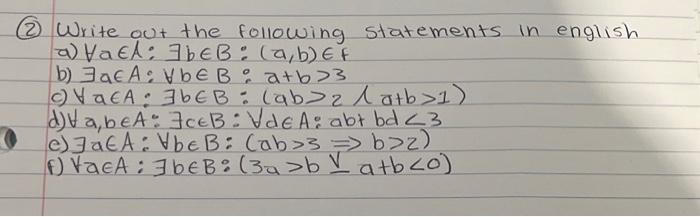 ② Write out the following statements in english
a) ∀a∈A: ∃b∈B: (a,b)∈f
b) ∃a∈A: ∀b∈B: a+b>3
c) ∀a∈A: ∃b∈B: (ab>2 ∧ a+b>1)
d) ∀a,b∈A: ∃c∈B: ∀d∈A: ab+bd<3
e) ∃a∈A: ∀b∈B: (ab>3 ⇒ b>2)
f) ∀a∈A: ∃b∈B: (3a>b ⊻ a+b<0)